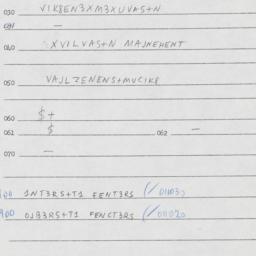 030 VIK8EN3XM3XUVAS+N
031 —
040 XVILVAS+N MAJNEHENT
050 VAJLZENENS+MVCIK8
060 $+
061 $ 062 —
070 —
1NT3RS+T1 FENT3RS
OJB3RS+T1 FENCT3RS